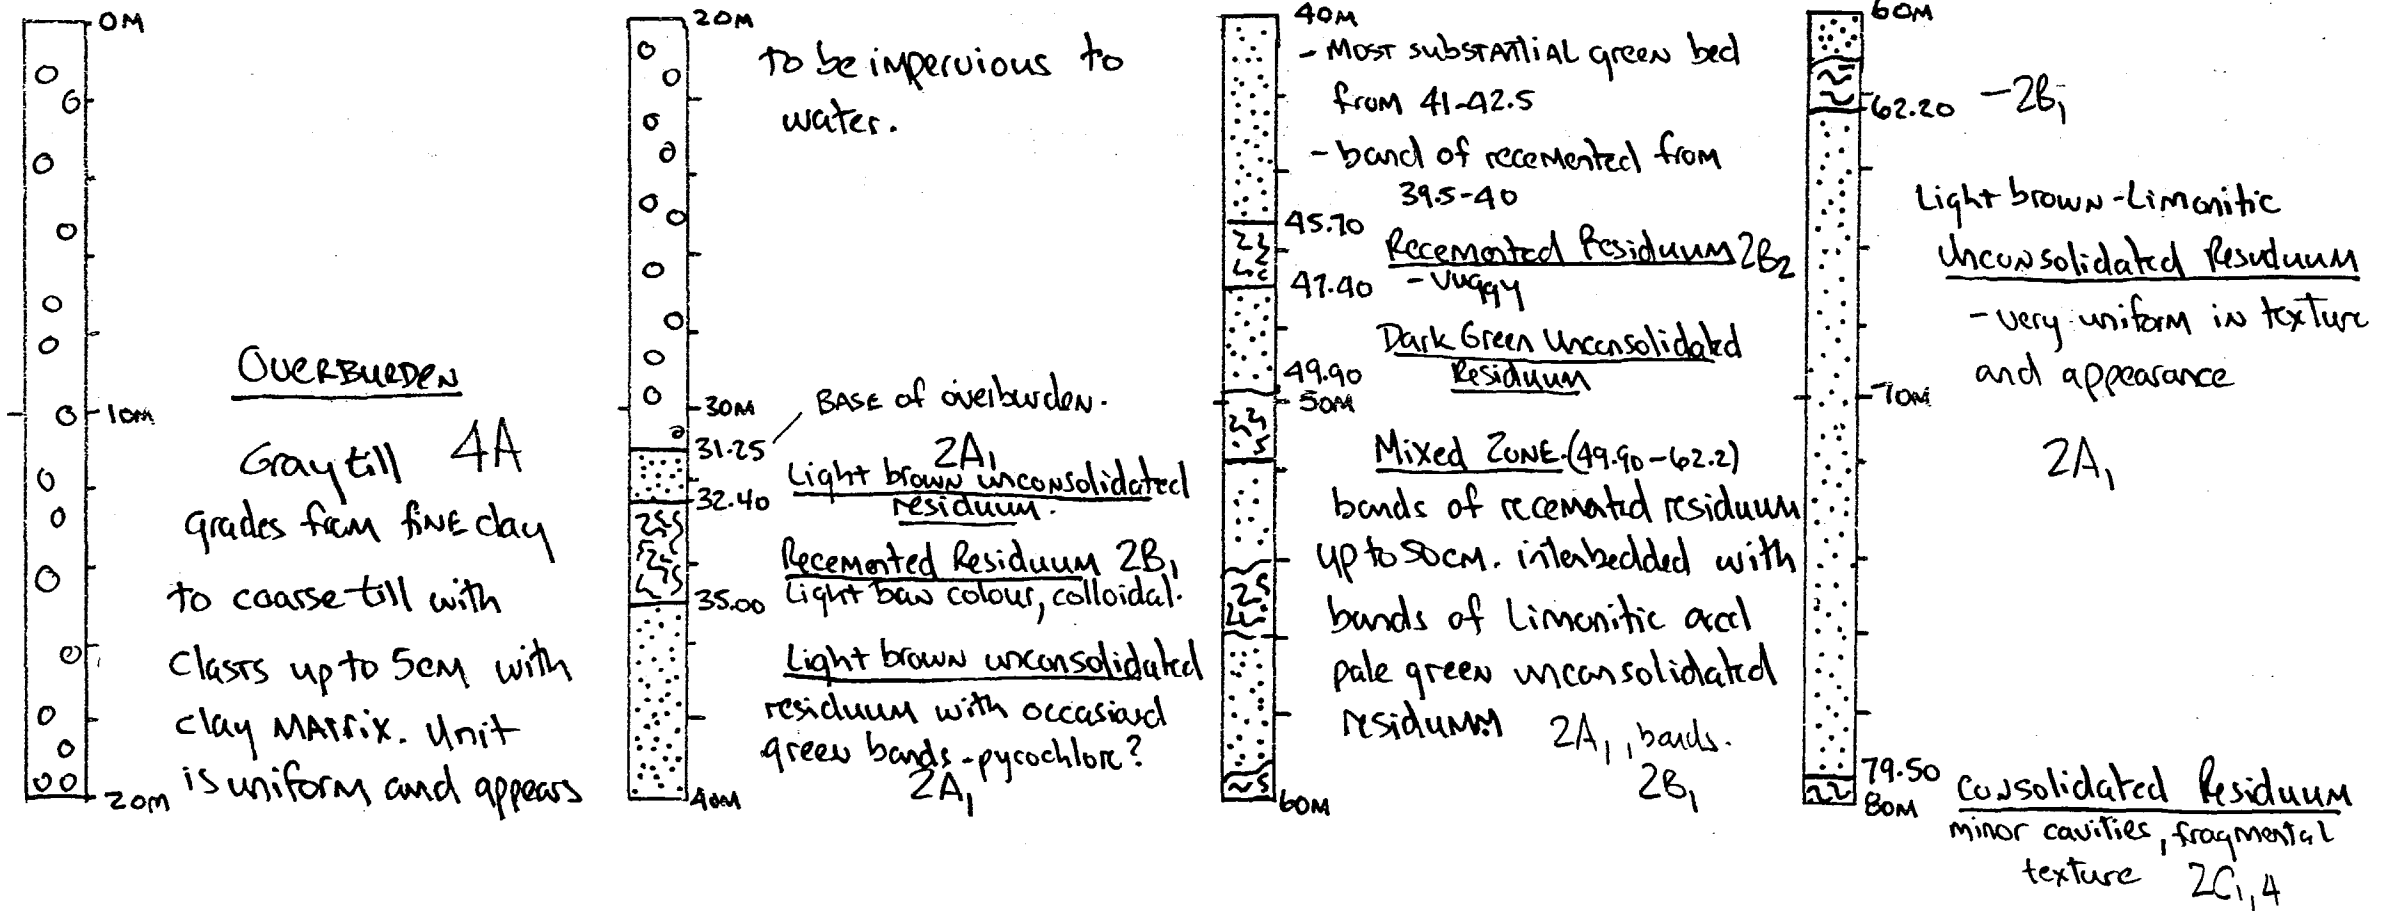 0M
10M
OVERBURDEN
Gray till 4A
grades from fine clay
to coarse till with
clasts up to 5cm with
clay matrix. Unit
is uniform and appears
20M
20M
to be impervious to
water.
30M
BASE of overburden.
31.25
2A1
Light brown unconsolidated
residuum.
32.40
Recemented Residuum 2B1
Light baw colour, colloidal.
35.00
Light brown unconsolidated
residuum with occasional
green bands - pyrochlore?
2A1
40M
40M
- Most substantial green bed
from 41-42.5
- band of recemented from
39.5-40
45.70
Recemented Residuum 2B2
- vuggy
47.40
Dark Green Unconsolidated
Residuum
49.90
50M
Mixed ZONE. (49.90-62.2)
bands of recemented residuum
up to 50cm. interbedded with
bands of Limonitic and
pale green unconsolidated
residuum
2A1, bands.
2B1
60M
60M
62.20 -2B1
Light brown - Limonitic
Unconsolidated Residuum
- very uniform in texture
and appearance
70M
2A1
79.50
80M
Consolidated Residuum
minor cavities, fragmental
texture 2C1,4